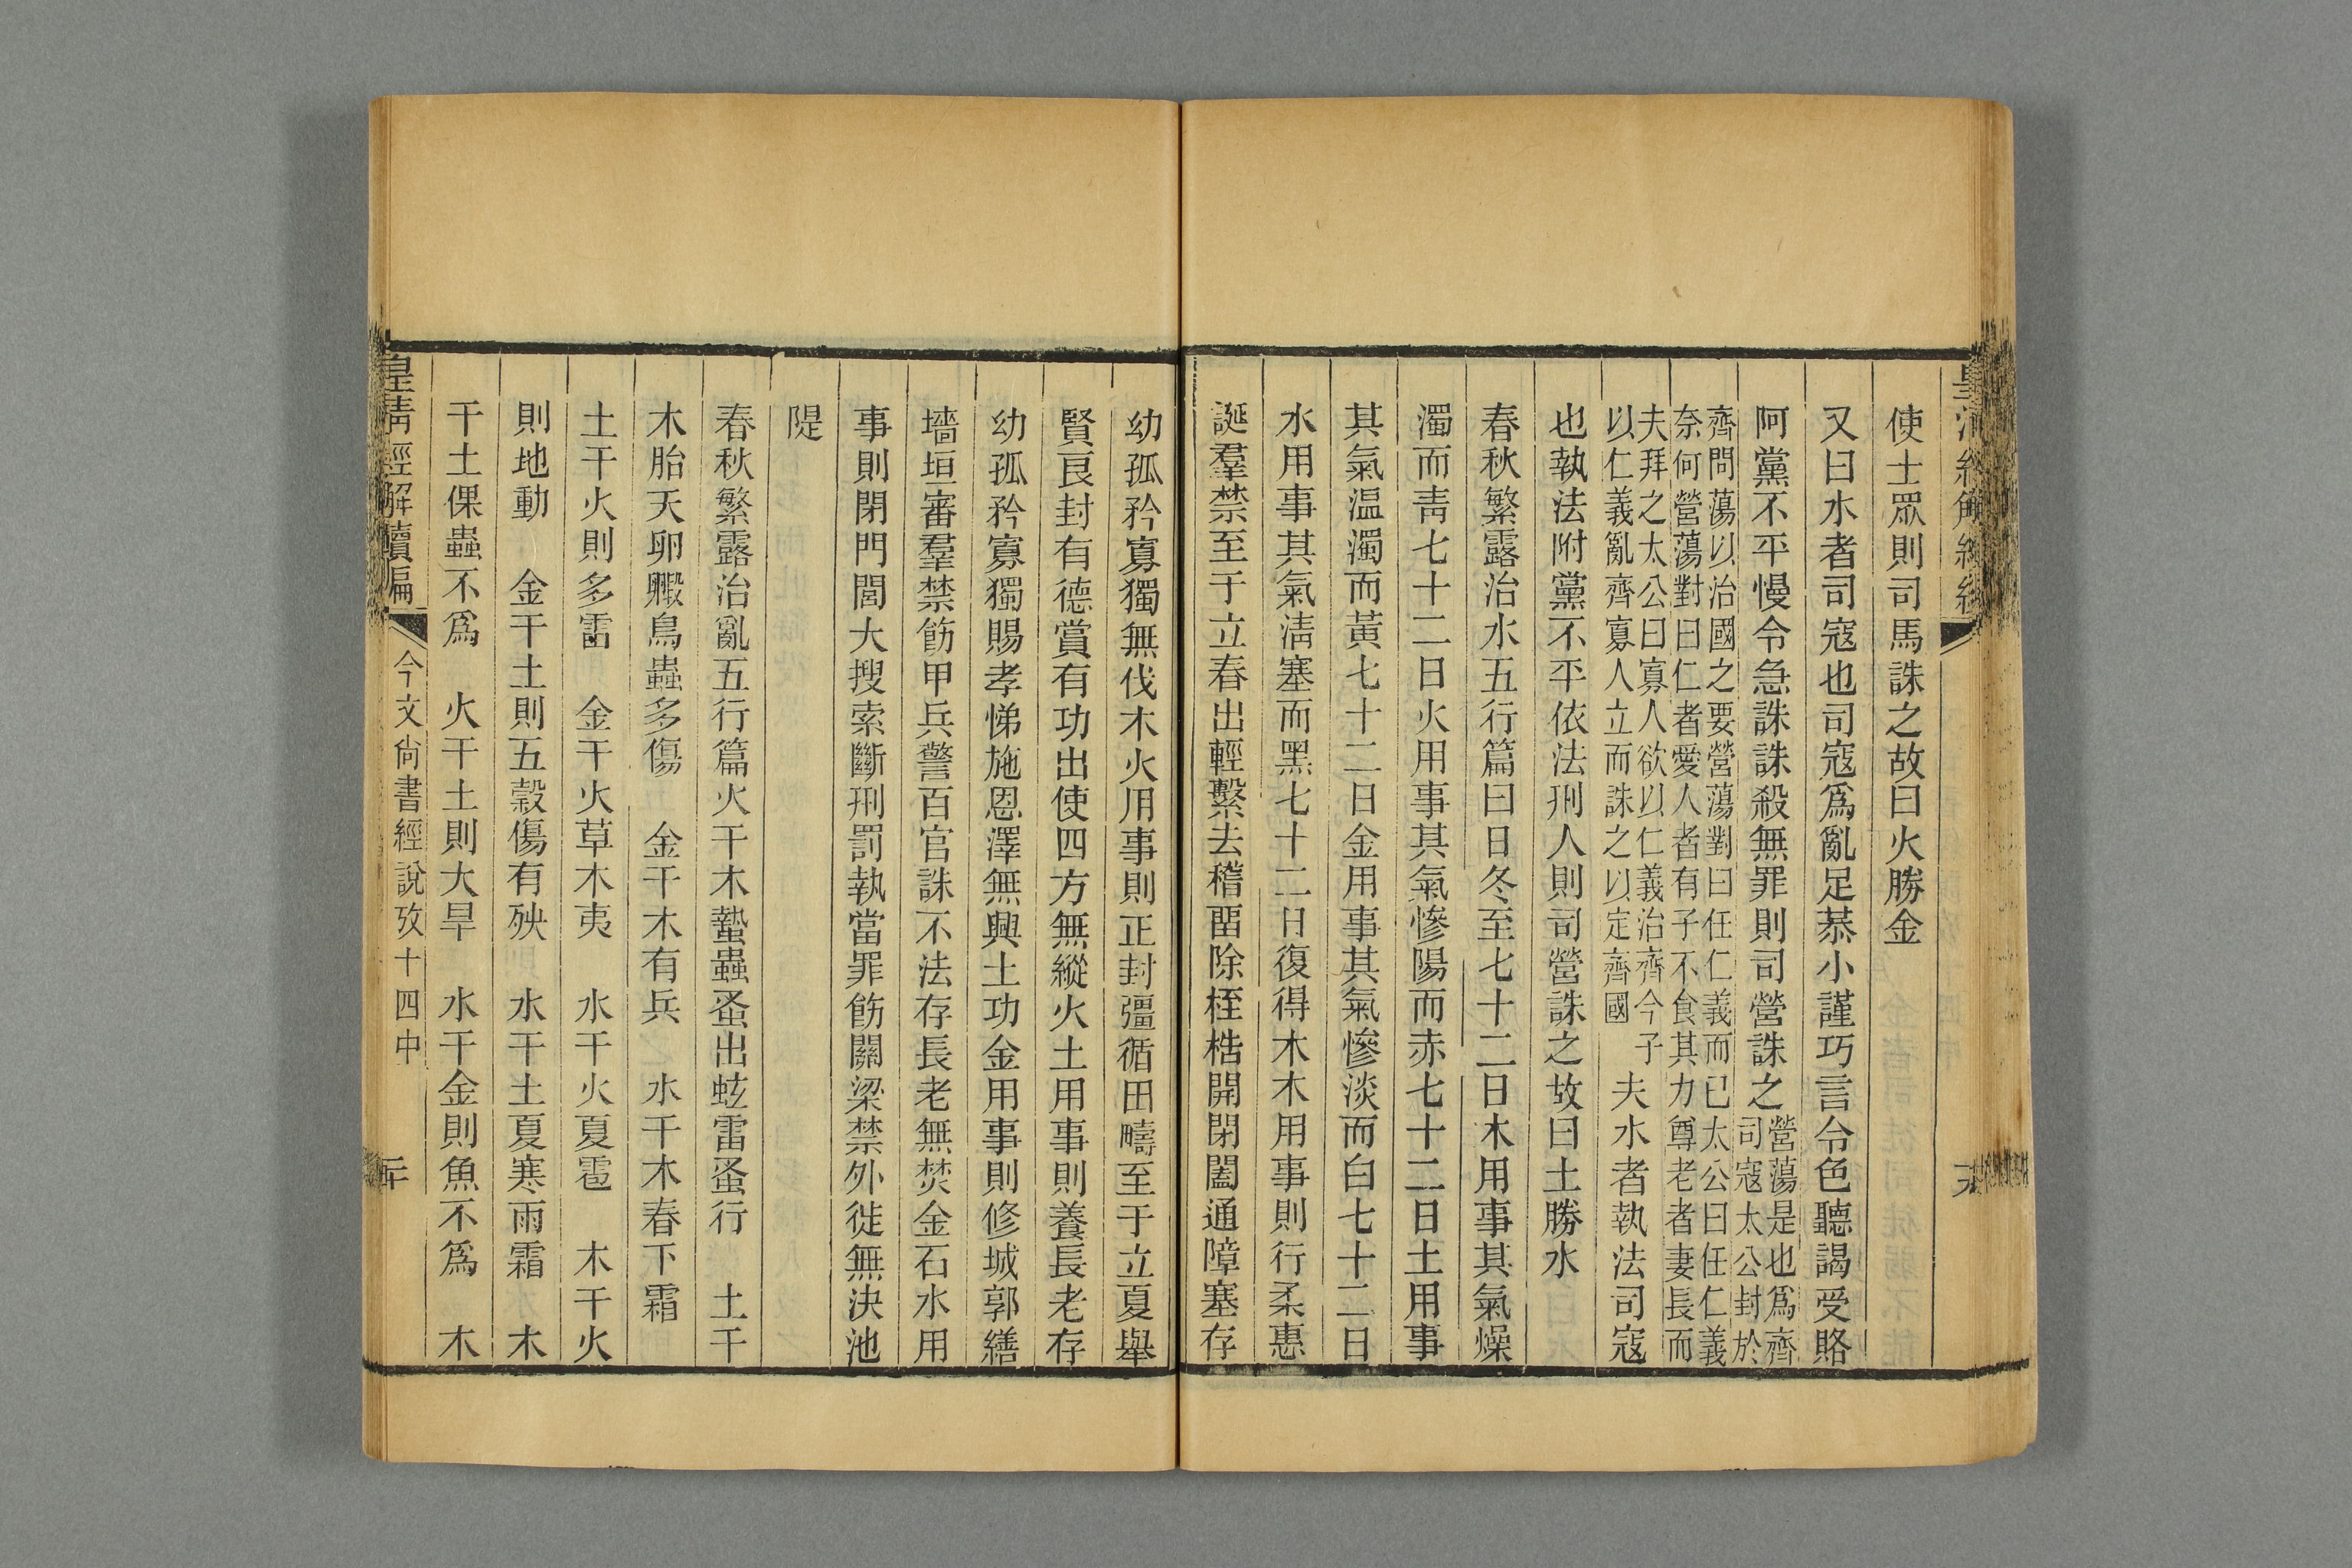 使士眾則司馬誅之故曰火勝金
又曰水者司寇也司寇爲亂足恭小謹巧言令色聽謁受賂
阿黨不平慢令急誅誅殺無罪則司營誅之
營蕩是也爲齊
司寇太公封於
齊問蕩以治國之要營蕩對曰任仁義而已太公曰任仁義
奈何營蕩對曰仁者愛人者有子不食其力尊老者妻長而
夫拜之太公曰寡人欲以仁義治齊今子
以仁義亂齊寡人立而誅之以定齊國
夫水者執法司寇
也執法附黨不平依法刑人則司營誅之故曰土勝水
春秋繁露治水五行篇曰日冬至七十二日木用事其氣燥
濁而靑七十二日火用事其氣慘陽而赤七十二日土用事
其氣温濁而黃七十二日金用事其氣慘淡而白七十二日
水用事其氣淸塞而黑七十二日復得木木用事則行柔惠
誕羣禁至于立春出輕繫去稽畱除桎梏開閉闔通障塞存
幼孤矜寡獨無伐木火用事則正封疆循田疇至于立夏舉
賢良封有德賞有功出使四方無縱火土用事則養長老存
幼孤矜寡獨賜孝悌施恩澤無興土功金用事則修城郭繕
墻垣審羣禁飭甲兵警百官誅不法存長老無焚金石水用
事則閉門閭大搜索斷刑罰執當罪飭關梁禁外徙無決池
隄
春秋繁露治亂五行篇火干木蟄蟲蚤出蚿雷蚤行　土干
木胎夭卵毈鳥蟲多傷　金干木有兵　水干木春下霜
土干火則多雷　金干火草木夷　水干火夏雹　木干火
則地動　金干土則五穀傷有殃　水干土夏寒雨霜　木
干土倮蟲不爲　火干土則大旱　水干金則魚不爲　木
皇淸經解續編
今文尙書經說攷十四中